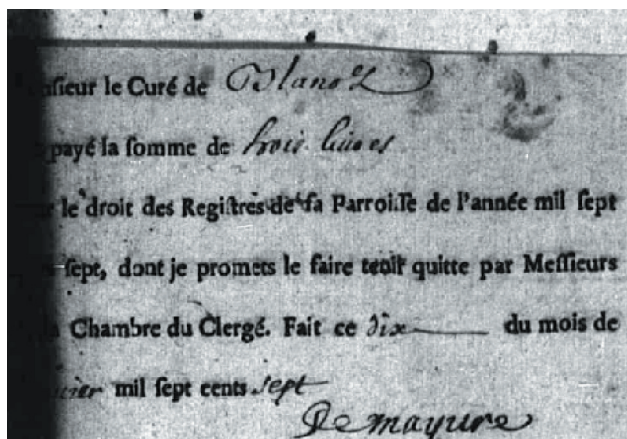 nſieur le Curé de Blanot
payé la ſomme de trois liures
le droit des Regiſtres de ſa Parroiſſe de l'année mil ſept
ſept, dont je promets le faire tenir quitte par Meſſieurs
Chambre du Clergé. Fait ce dix du mois de
mil ſept cents sept
Demayure